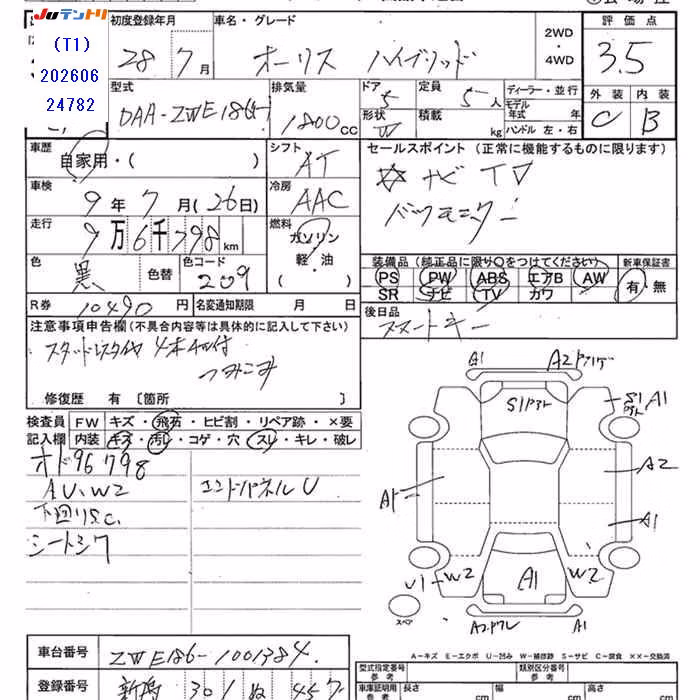 JUテントリ
(T1)
202606
24782
初度登録年月
28 年 7 月
車名・グレード
オーリス ハイブリッド
2WD
・
4WD
評価点
3.5
型式
DAA-ZWE186H
排気量
1800 cc
ドア 5
形状 W
定員 5 人
積載 kg
ディーラー・並行
モデル
年式 年
ハンドル 左・右
外装 C
内装 B
車歴
自家用・( )
シフト AT
セールスポイント (正常に機能するものに限ります)
☆ ナビ TV
バックモニター
車検
9 年 7 月 (26日)
冷房 AAC
走行
9万6千798 km
燃料
ガソリン
軽・油
( )
色 黒 色替
色コード 209
装備品 (純正品に限り○をつけてください)
新車保証書
PS PW ABS エアB AW
有・無
SR ナビ TV カワ
R券 10490 円
名変通知期限 月 日
後日品 スマートキー
注意事項申告欄 (不具合内容等は具体的に記入して下さい)
スタッドレスタイヤ 4本AW付
つみこみ
修復歴 有 〔箇所 〕
検査員
記入欄
FW キズ・飛石・ヒビ割・リペア跡・×要
内装 キズ・汚レ・コゲ・穴・スレ・キレ・破レ
オド96798
AU、W2
エンドパネルU
下回りS.C.
シートシワ
A1
A2
S1
A1
A2
A1
A1
U1
W2
A1
W2
スペア
A1
A-キズ E-エクボ U-凹み W-補修跡 S-サビ C-腐食 XX-交換済
車台番号 ZWE186-1001384
登録番号 新潟 301 ぬ
型式指定番号
参考
類別区分番号
参考
車庫証明用
参考
長さ cm
幅 cm
高さ cm